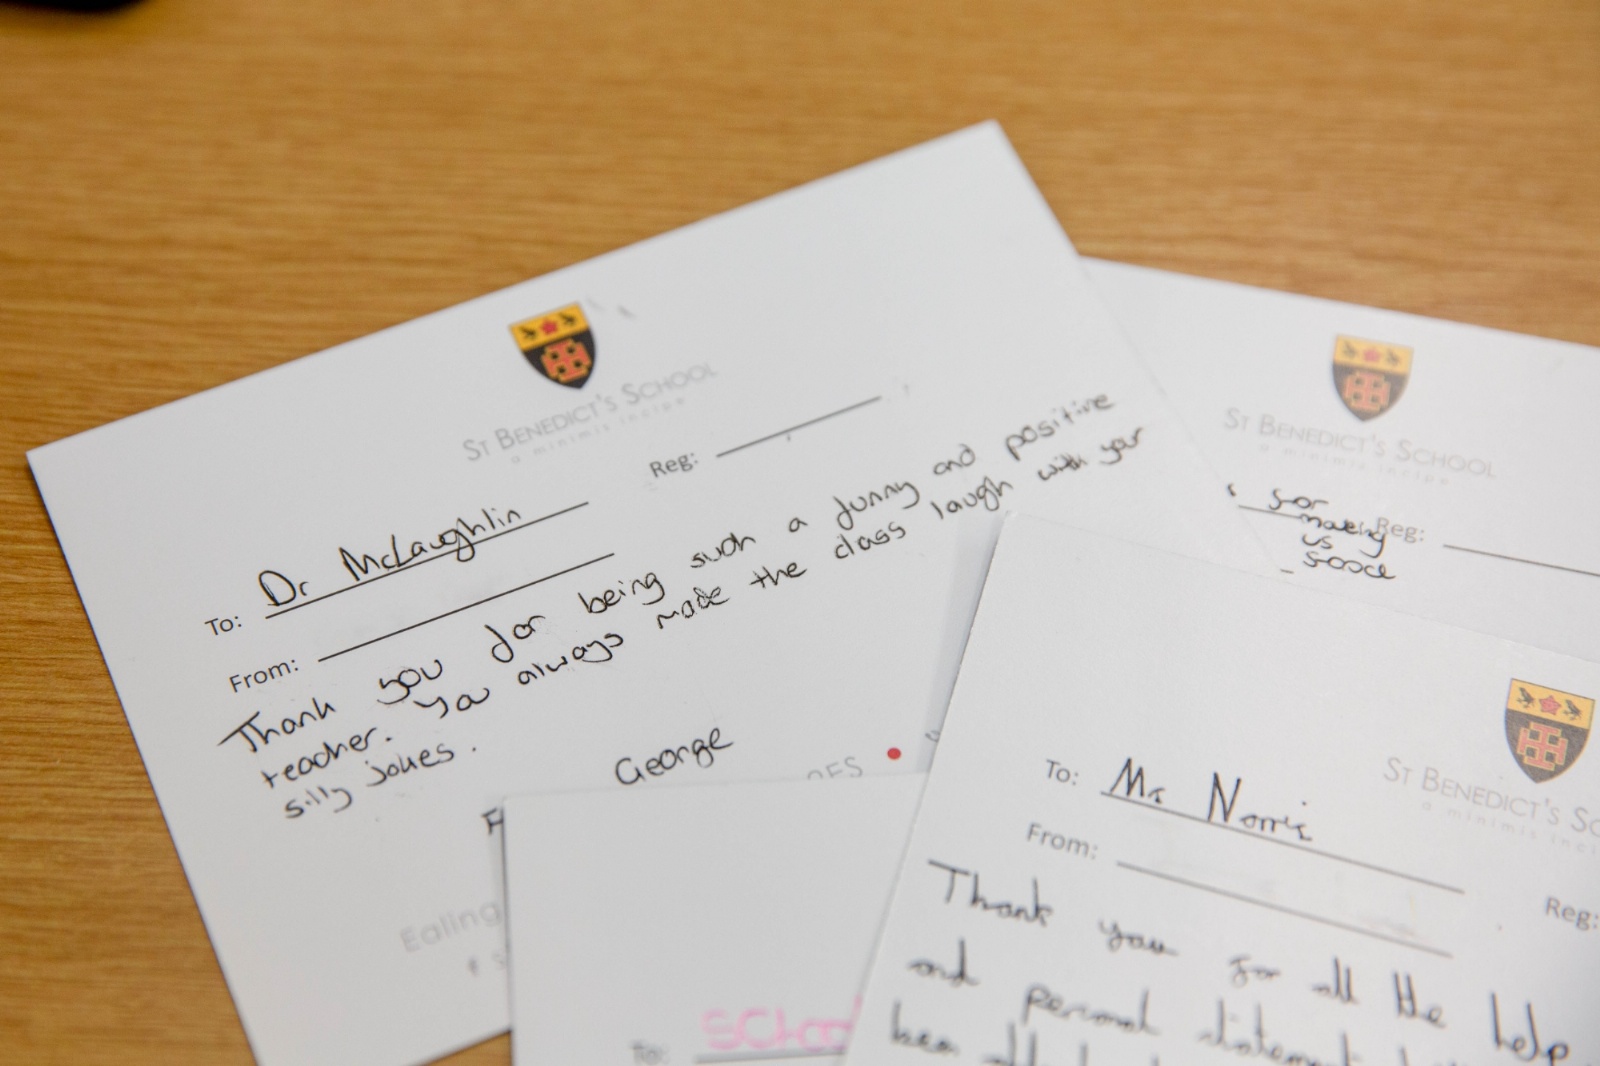 ST BENEDICT'S SCHOOL
a minimis incipe
Reg:
To: Dr McLaughlin
From:
Thank you for being such a funny and positive
teacher. You always made the class laugh with your
silly jokes.
George
Ealing
ST BENEDICT'S SCHOOL
a minimis incipe
for
making
us
Reg:
To:
ST BENEDICT'S SC
a minimis inci
To: Mr Norris
From:
Reg:
Thank you for all the help
and personal statement
been